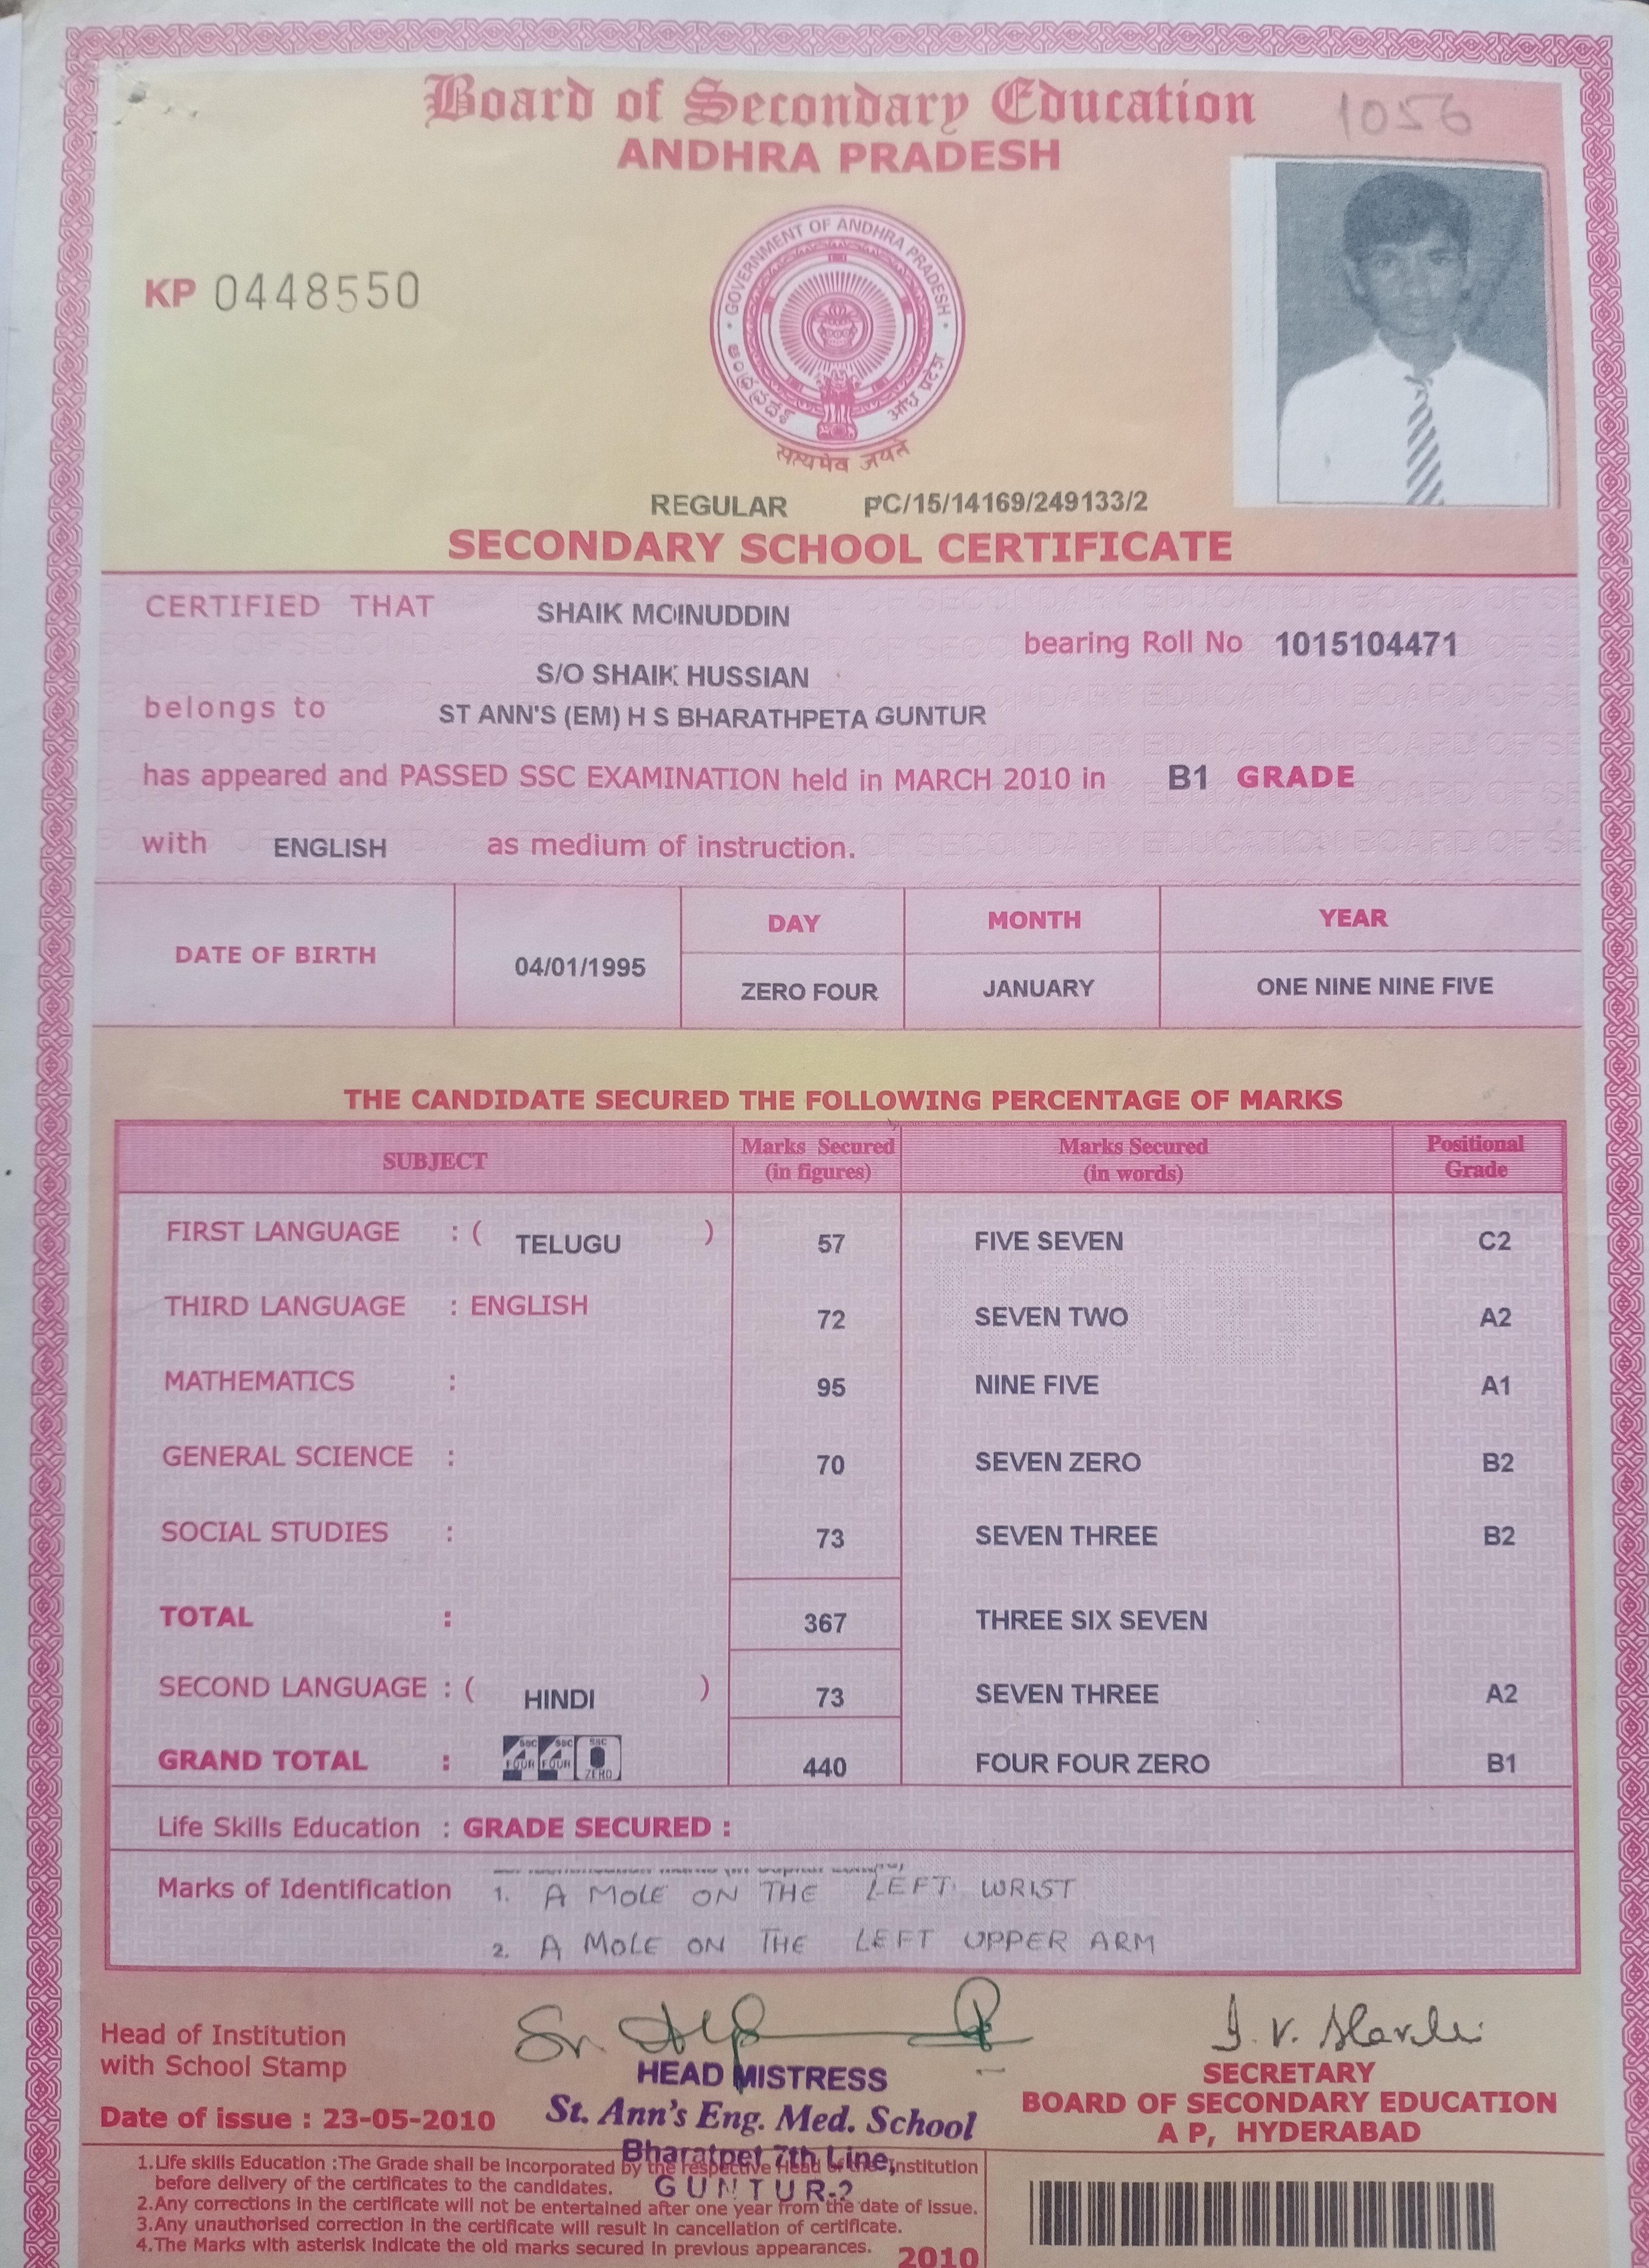 Board of Secondary Education
1056
ANDHRA PRADESH
GOVERNMENT OF ANDHRA PRADESH
ఆంధ్రప్రదేశ్
आंध्र प्रदेश
सत्यमेव जयते
KP 0448550
REGULAR PC/15/14169/249133/2
SECONDARY SCHOOL CERTIFICATE
CERTIFIED THAT SHAIK MOINUDDIN
bearing Roll No 1015104471
S/O SHAIK HUSSIAN
belongs to ST ANN'S (EM) H S BHARATHPETA GUNTUR
has appeared and PASSED SSC EXAMINATION held in MARCH 2010 in B1 GRADE
with ENGLISH as medium of instruction.
DATE OF BIRTH 04/01/1995 DAY MONTH YEAR
ZERO FOUR JANUARY ONE NINE NINE FIVE
THE CANDIDATE SECURED THE FOLLOWING PERCENTAGE OF MARKS
SUBJECT Marks Secured (in figures) Marks Secured (in words) Positional Grade
FIRST LANGUAGE : ( TELUGU ) 57 FIVE SEVEN C2
THIRD LANGUAGE : ENGLISH 72 SEVEN TWO A2
MATHEMATICS : 95 NINE FIVE A1
GENERAL SCIENCE : 70 SEVEN ZERO B2
SOCIAL STUDIES : 73 SEVEN THREE B2
TOTAL : 367 THREE SIX SEVEN
SECOND LANGUAGE : ( HINDI ) 73 SEVEN THREE A2
GRAND TOTAL : SSC FOUR SSC FOUR SSC ZERO 440 FOUR FOUR ZERO B1
Life Skills Education : GRADE SECURED :
Marks of Identification 1. A MOLE ON THE LEFT WRIST
2. A MOLE ON THE LEFT UPPER ARM
Head of Institution
with School Stamp
HEAD MISTRESS
St. Ann's Eng. Med. School
Bharatpet 7th Line,
GUNTUR-2
SECRETARY
BOARD OF SECONDARY EDUCATION
A P, HYDERABAD
Date of issue : 23-05-2010
1.Life skills Education :The Grade shall be incorporated by the respective Head of the Institution
before delivery of the certificates to the candidates.
2.Any corrections in the certificate will not be entertained after one year from the date of issue.
3.Any unauthorised correction in the certificate will result in cancellation of certificate.
4.The Marks with asterisk indicate the old marks secured in previous appearances.
2010